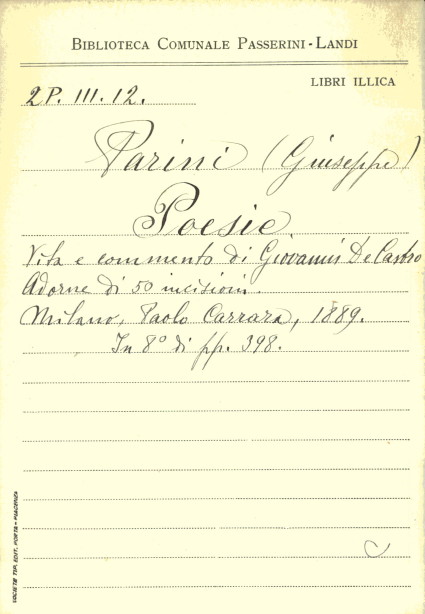 BIBLIOTECA COMUNALE PASSERINI-LANDI
LIBRI ILLICA
2P. III. 12.
Parini (Giuseppe)
Poesie
Vita e commento di Giovanni De Castro
Adorne di 50 incisioni.
Milano, Paolo Carrara, 1889.
In 8° di pp. 398.
SOCIETÀ TIP. EDIT. PORTA - PIACENZA